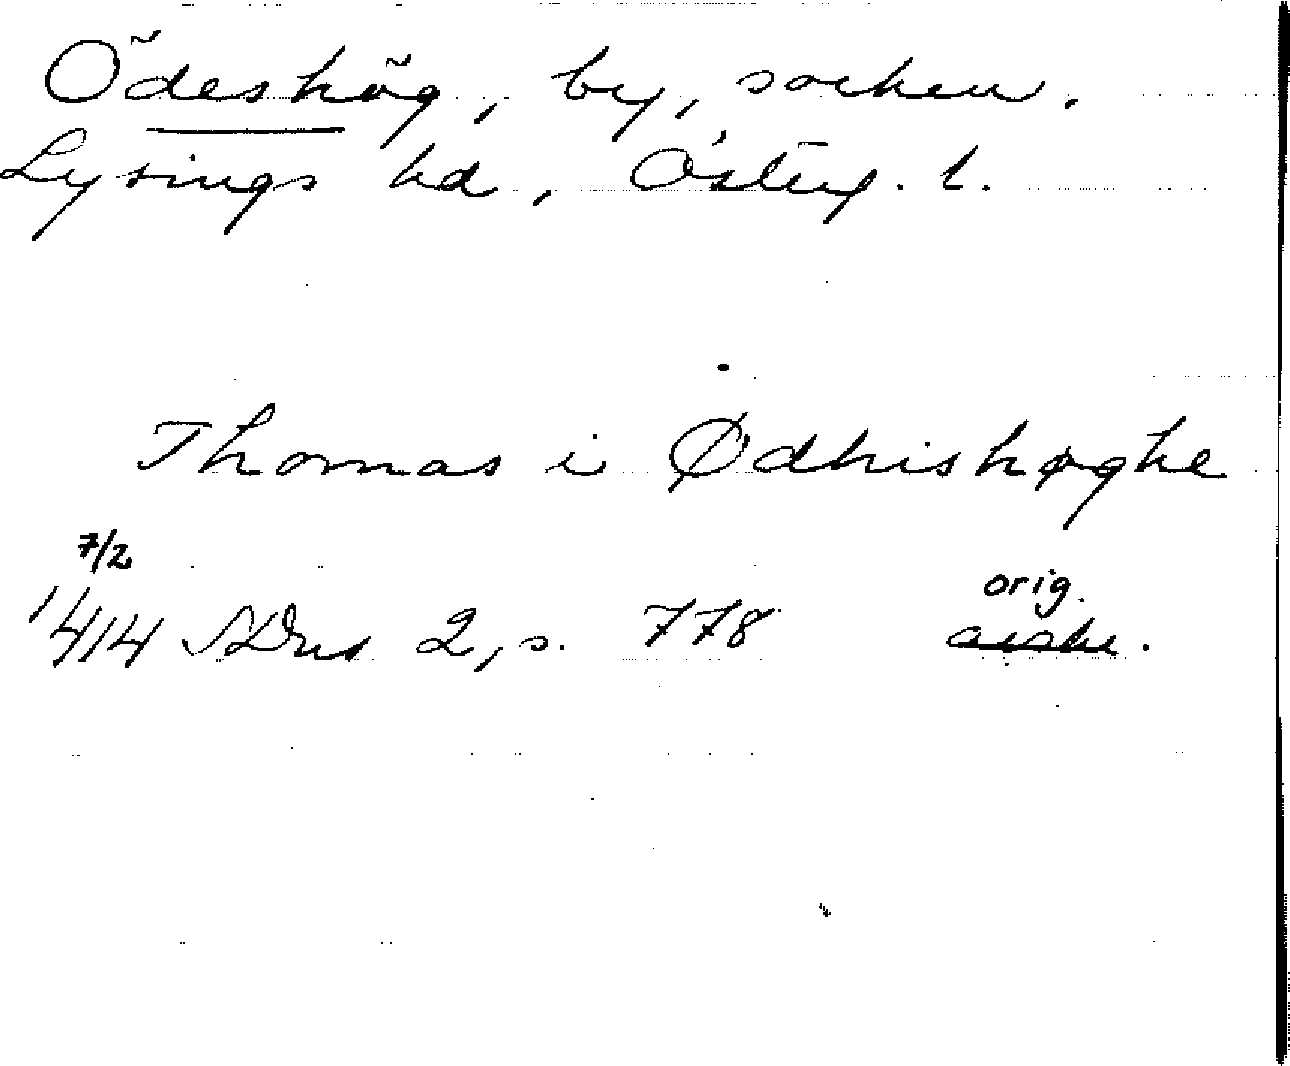 Ödeshög, by, socken.
Lysings hd, Östergl.
Thomas i Ødhishøghe
7/2
1414 SDns 2, s. 778 orig.
avskr.